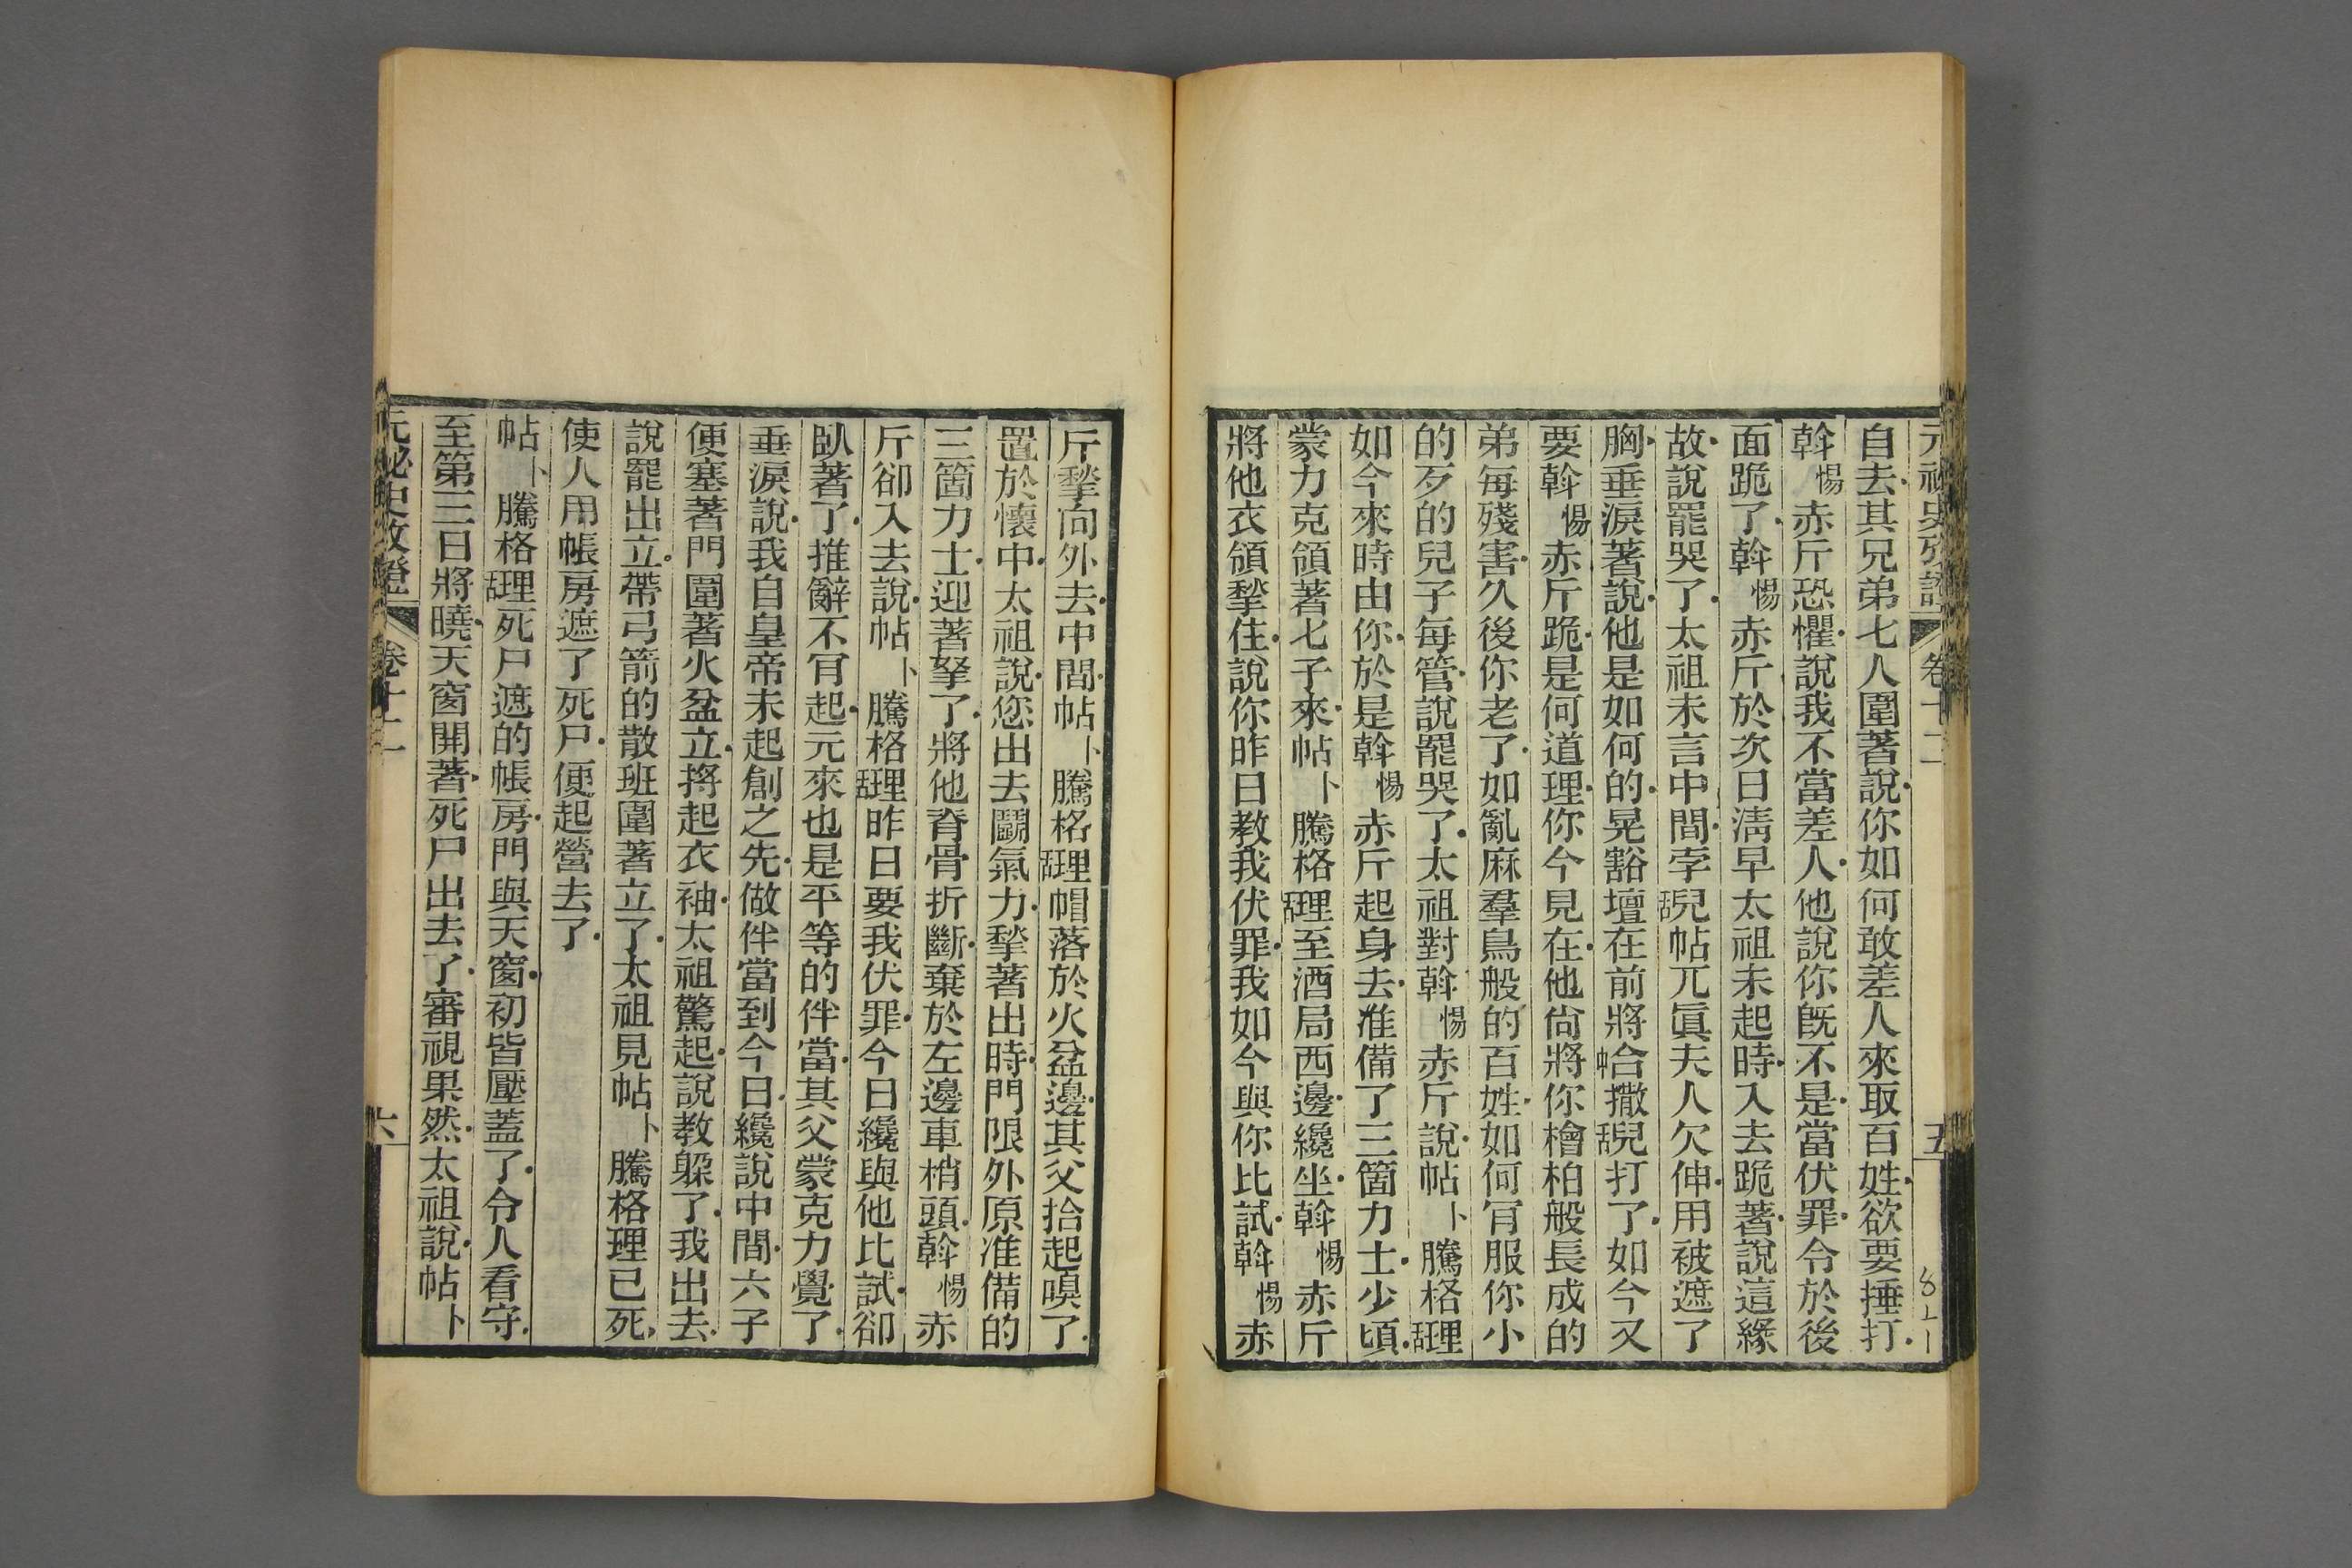 元秘史攷證 卷十二 五
821
自去其兄弟七人圍著說你如何敢差人來取百姓欲要捶打
斡惕赤斤恐懼說我不當差人他說你旣不是當伏罪令於後
面跪了斡惕赤斤於次日淸早太祖未起時入去跪著說這緣
故說罷哭了太祖未言中間孛舌兒帖兀眞夫人欠伸用被遮了
胸垂淚著說他是如何的晃豁壇在前將中合撒舌兒打了如今又
要斡惕赤斤跪是何道理你今見在他尙將你檜柏般長成的
弟每殘害久後你老了如亂麻羣鳥般的百姓如何肎服你小
的歹的兒子每管說罷哭了太祖對斡惕赤斤說帖卜騰格舌理
如今來時由你於是斡惕赤斤起身去准備了三箇力士少頃
蒙力克領著七子來帖卜騰格舌理至酒局西邊纔坐斡惕赤斤
將他衣領揫住說你昨日教我伏罪我如今與你比試斡惕赤
斤揫向外去中間帖卜騰格舌理帽落於火盆邊其父拾起嗅了
置於懷中太祖說您出去鬬氣力揫著出時門限外原准備的
三箇力士迎著拏了將他脊骨折斷棄於左邊車梢頭斡惕赤
斤卻入去說帖卜騰格舌理昨日要我伏罪今日纔與他比試卻
臥著了推辭不肎起元來也是平等的伴當其父蒙克力覺了
垂淚說我自皇帝未起創之先做伴當到今日纔說中間六子
便塞著門圍著火盆立揎起衣袖太祖驚起說教躱了我出去
說罷出立帶弓箭的散班圍著立了太祖見帖卜騰格理已死
使人用帳房遮了死尸便起營去了
帖卜騰格舌理死尸遮的帳房門與天窗初皆壓蓋了令人看守
至第三日將曉天窗開著死尸出去了審視果然太祖說帖卜
元秘史攷證 卷十二 六